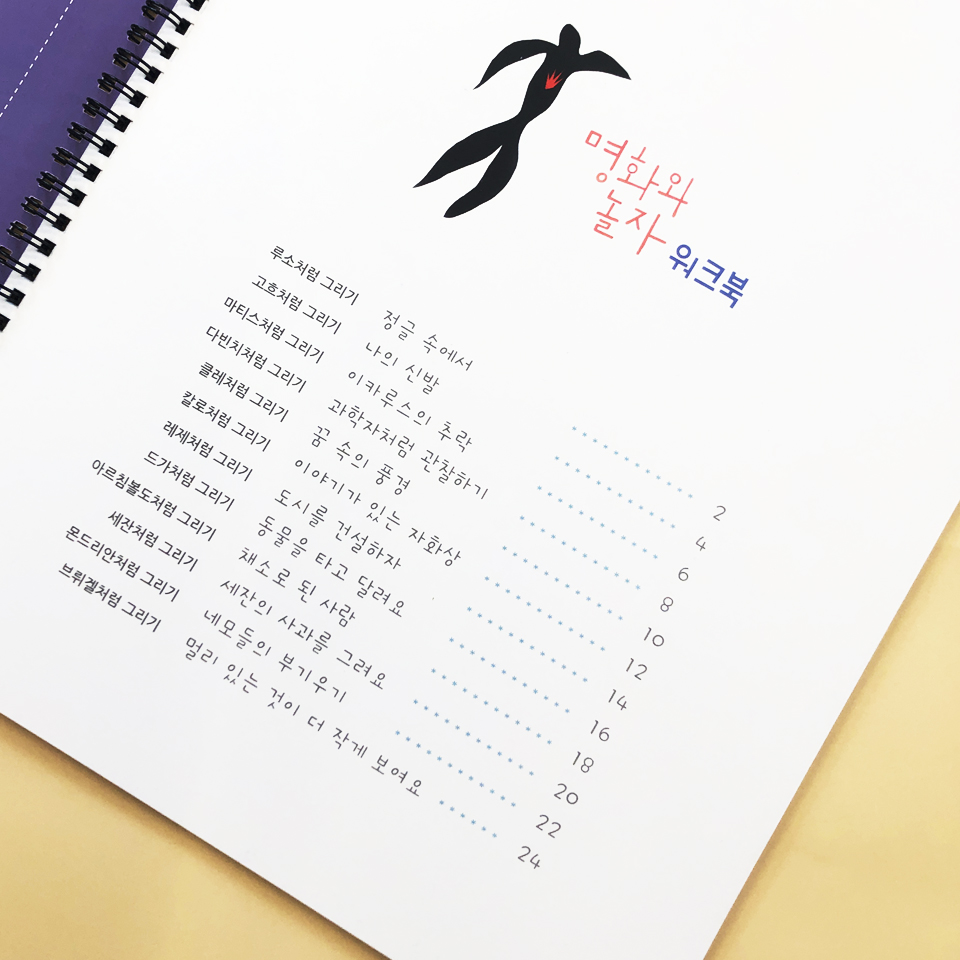 명화와
놀자 워크북
루소처럼 그리기 정글 속에서 2
고흐처럼 그리기 나의 신발 4
마티스처럼 그리기 이카루스의 추락 6
다빈치처럼 그리기 과학자처럼 관찰하기 8
클레처럼 그리기 꿈 속의 풍경 10
칼로처럼 그리기 이야기가 있는 자화상 12
레제처럼 그리기 도시를 건설하자 14
드가처럼 그리기 동물을 타고 달려요 16
아르침볼도처럼 그리기 채소로 된 사람 18
세잔처럼 그리기 세잔의 사과를 그려요 20
몬드리안처럼 그리기 네모들의 부기우기 22
브뤼겔처럼 그리기 멀리 있는 것이 더 작게 보여요 24